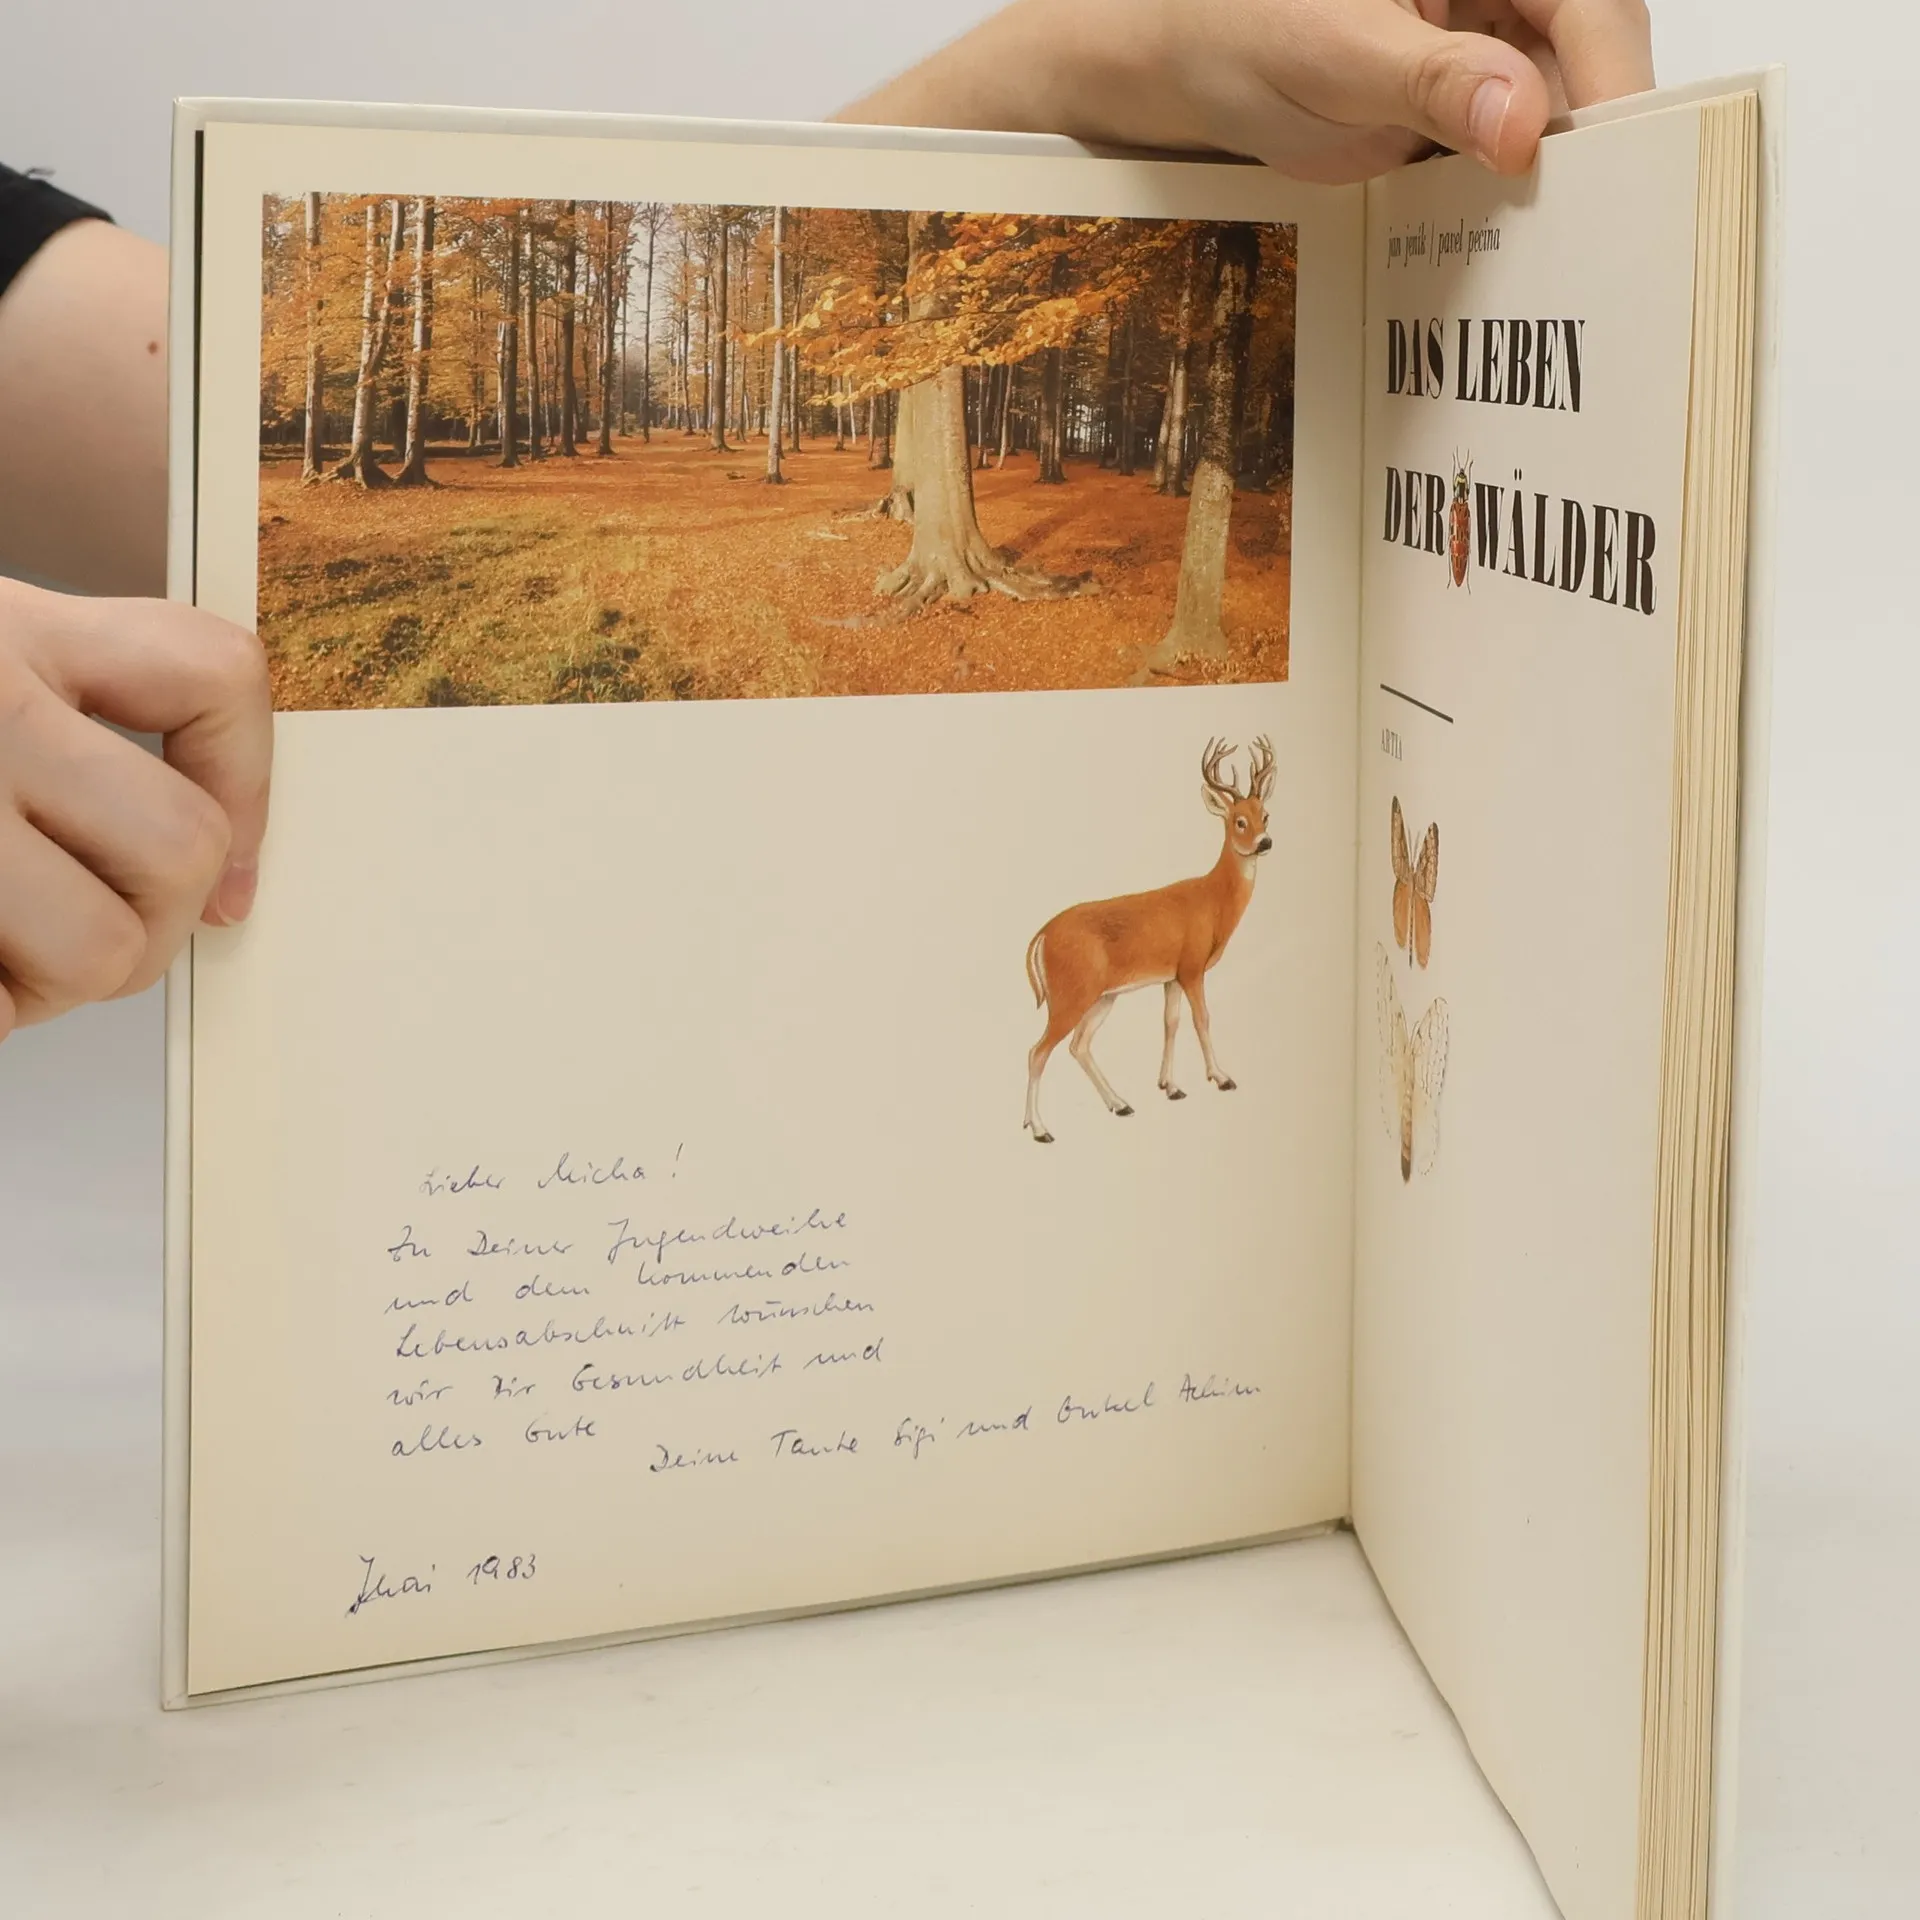 Lieber Micha!
Zu Deiner Jugendweihe
und dem kommenden
Lebensabschnitt wünschen
wir Dir Gesundheit und
alles Gute
Deine Tante Sigi und Onkel Achim
Mai 1983
jan jeník / pavel pecina
DAS LEBEN
DER WÄLDER
ARTIA